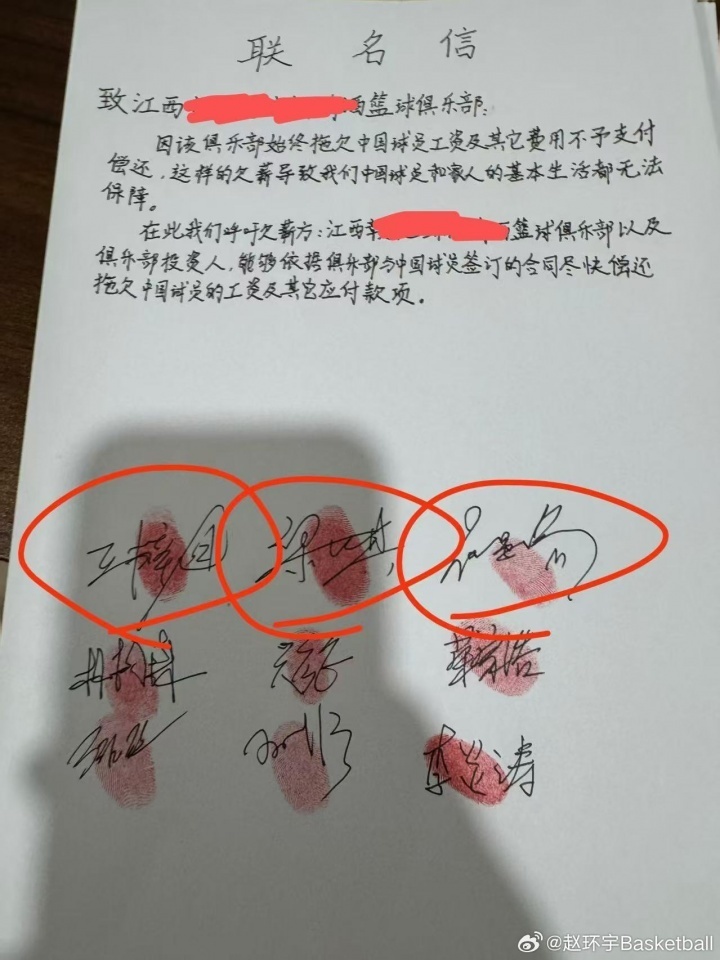 联 名 信
致江西 西篮球俱乐部:
因该俱乐部始终拖欠中国球员工资及其它费用不予支付
偿还,这样的欠薪导致我们中国球员和家人的基本生活都无法
保障。
在此我们呼吁欠薪方:江西 篮球俱乐部以及
俱乐部投资人,能够依据俱乐部与中国球员签订的合同尽快偿还
拖欠中国球员的工资及其它应付款项。
@赵环宇Basketball